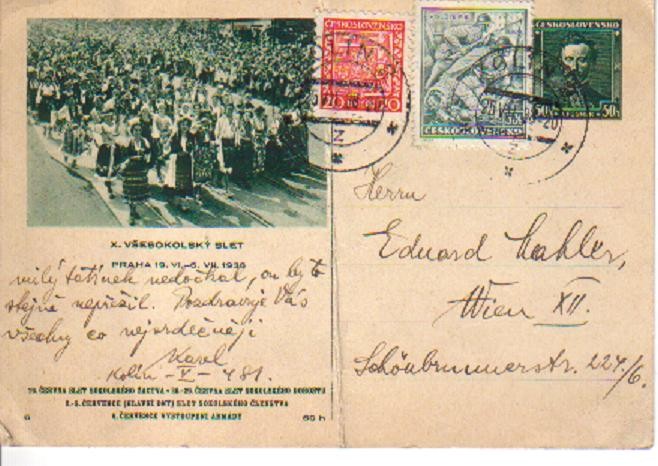 ČESKOSLOVENSKO
20 20
ČESKOSLOVENSKO
ČESKOSLOVENSKO
50h 50h
X. VŠESOKOLSKÝ SLET
PRAHA 19. VI.–6. VII. 1938
milý tatínek nedočkal, on by to
stejně nepřežil. Pozdravuje Vás
všechny co nejsrdečněji
Karel
Kolín - V - 481.
SLET SOKOLSKÉHO ŽACTVA SLET SOKOLSKÉHO DOROSTU
ČERVENCE (HLAVNÍ DNY) SLET SOKOLSKÉHO ČLENSTVA
6. ČERVENCE VYSTOUPENÍ ARMÁDY
6
65 h
Herrn
Eduard Mahler,
Wien XII.
Schönbrunnerstr. 224/6.